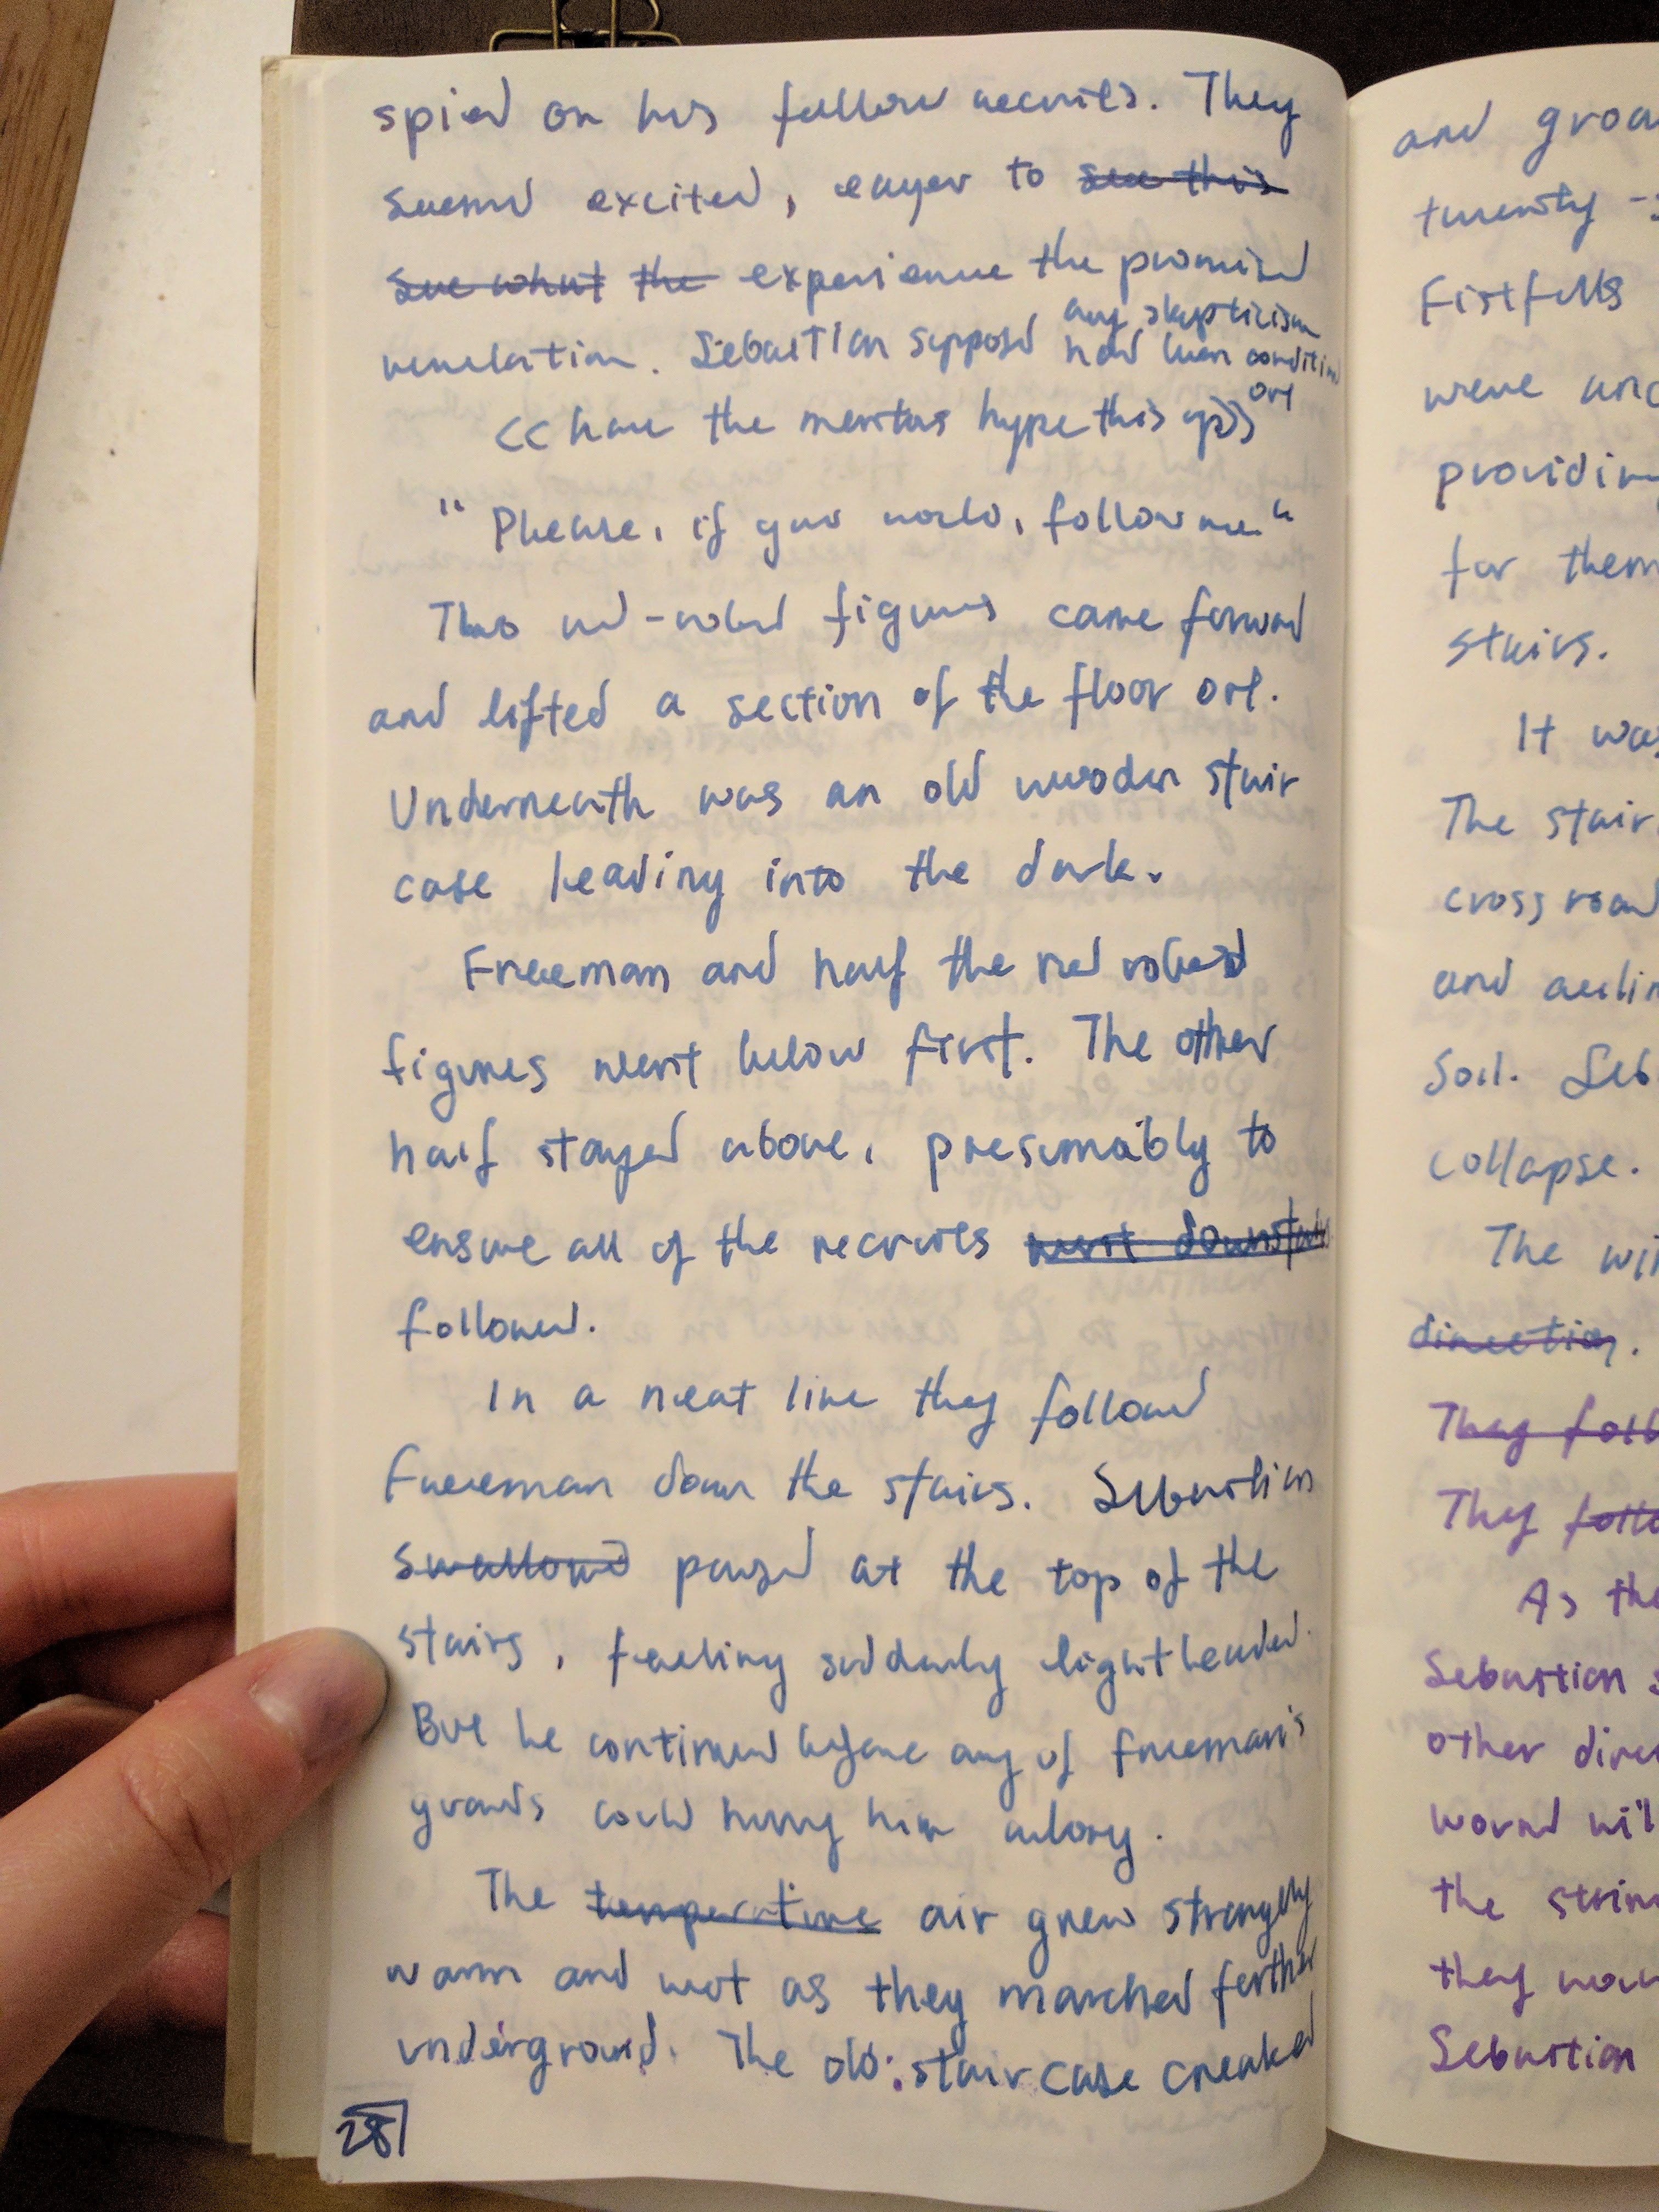 spied on his fellow recruits. They
seemed excited, eager to see this
see what the experience the promised
revelation. Sebastian supposed any skepticism
had been conditioned
out
<< have the mentors hype this up>>
"Please, if you would, follow me"
Two red-robed figures came forward
and lifted a section of the floor out.
Underneath was an old wooden stair
case leading into the dark.
Freeman and half the red robed
figures went below first. The other
half stayed above, presumably to
ensure all of the recruits went downstairs
followed.
In a neat line they followed
Freeman down the stairs. Sebastian
swallowed paused at the top of the
stairs, feeling suddenly lightheaded.
But he continued before any of Freeman's
guards could hurry him along.
The temperature air grew strangely
warm and wet as they marched further
underground. The old staircase creaked
28
and groa
twenty-s
Fistfulls
were and
providin
for them
stairs.
It was
The stair
crossroad
and ceilin
Soil. Seb
collapse.
The wi
direction.
They foll
They follo
As the
Sebastian s
other dire
world wil
the strin
they wou
Sebastian